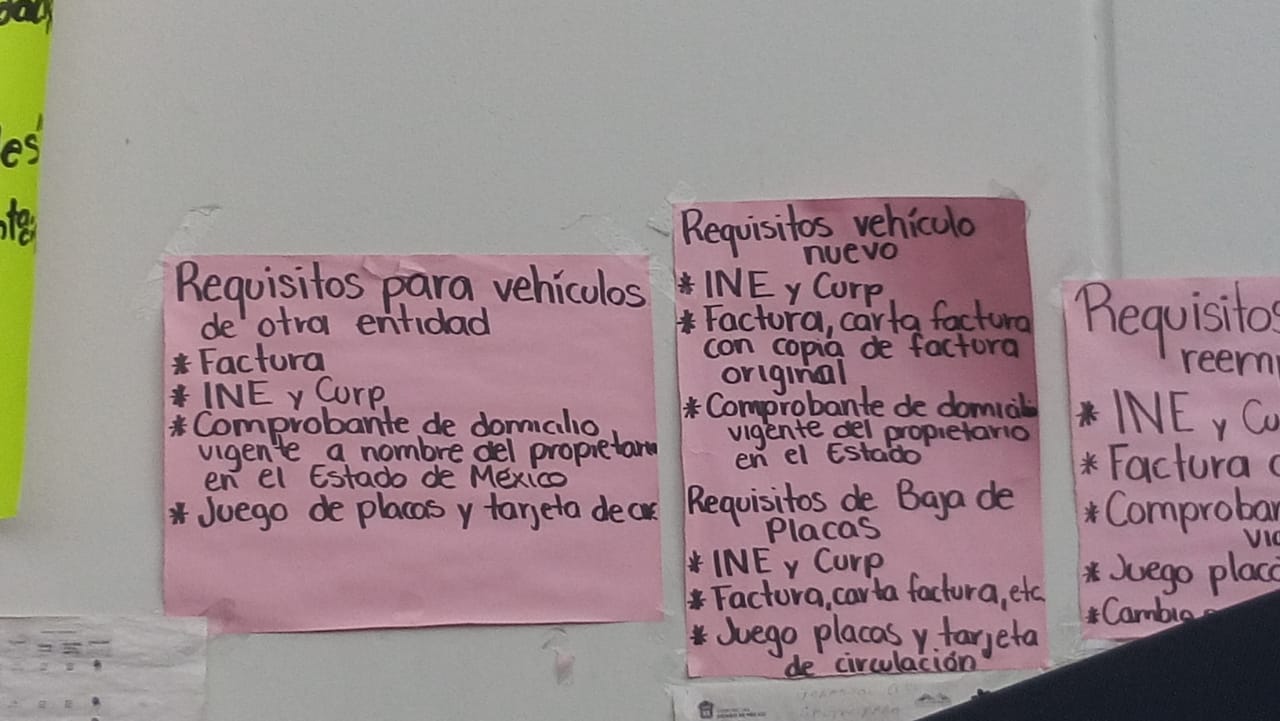 es
Requisitos para vehículos
de otra entidad
* Factura
* INE y Curp
* Comprobante de domicilio
vigente a nombre del propietario
en el Estado de México
* Juego de placas y tarjeta de
Requisitos vehículo
nuevo
* INE y Curp
* Factura, carta factura
con copia de factura
original
* Comprobante de domicili
vigente del propietario
en el Estado
Requisitos de Baja de
Placas
* INE y Curp
* Factura, carta factura, etc
* Juego placas y tarjeta
de circulación
Requisitos
reem
* INE y Cu
* Factura
* Comproba
* Juego placa
* Cambio